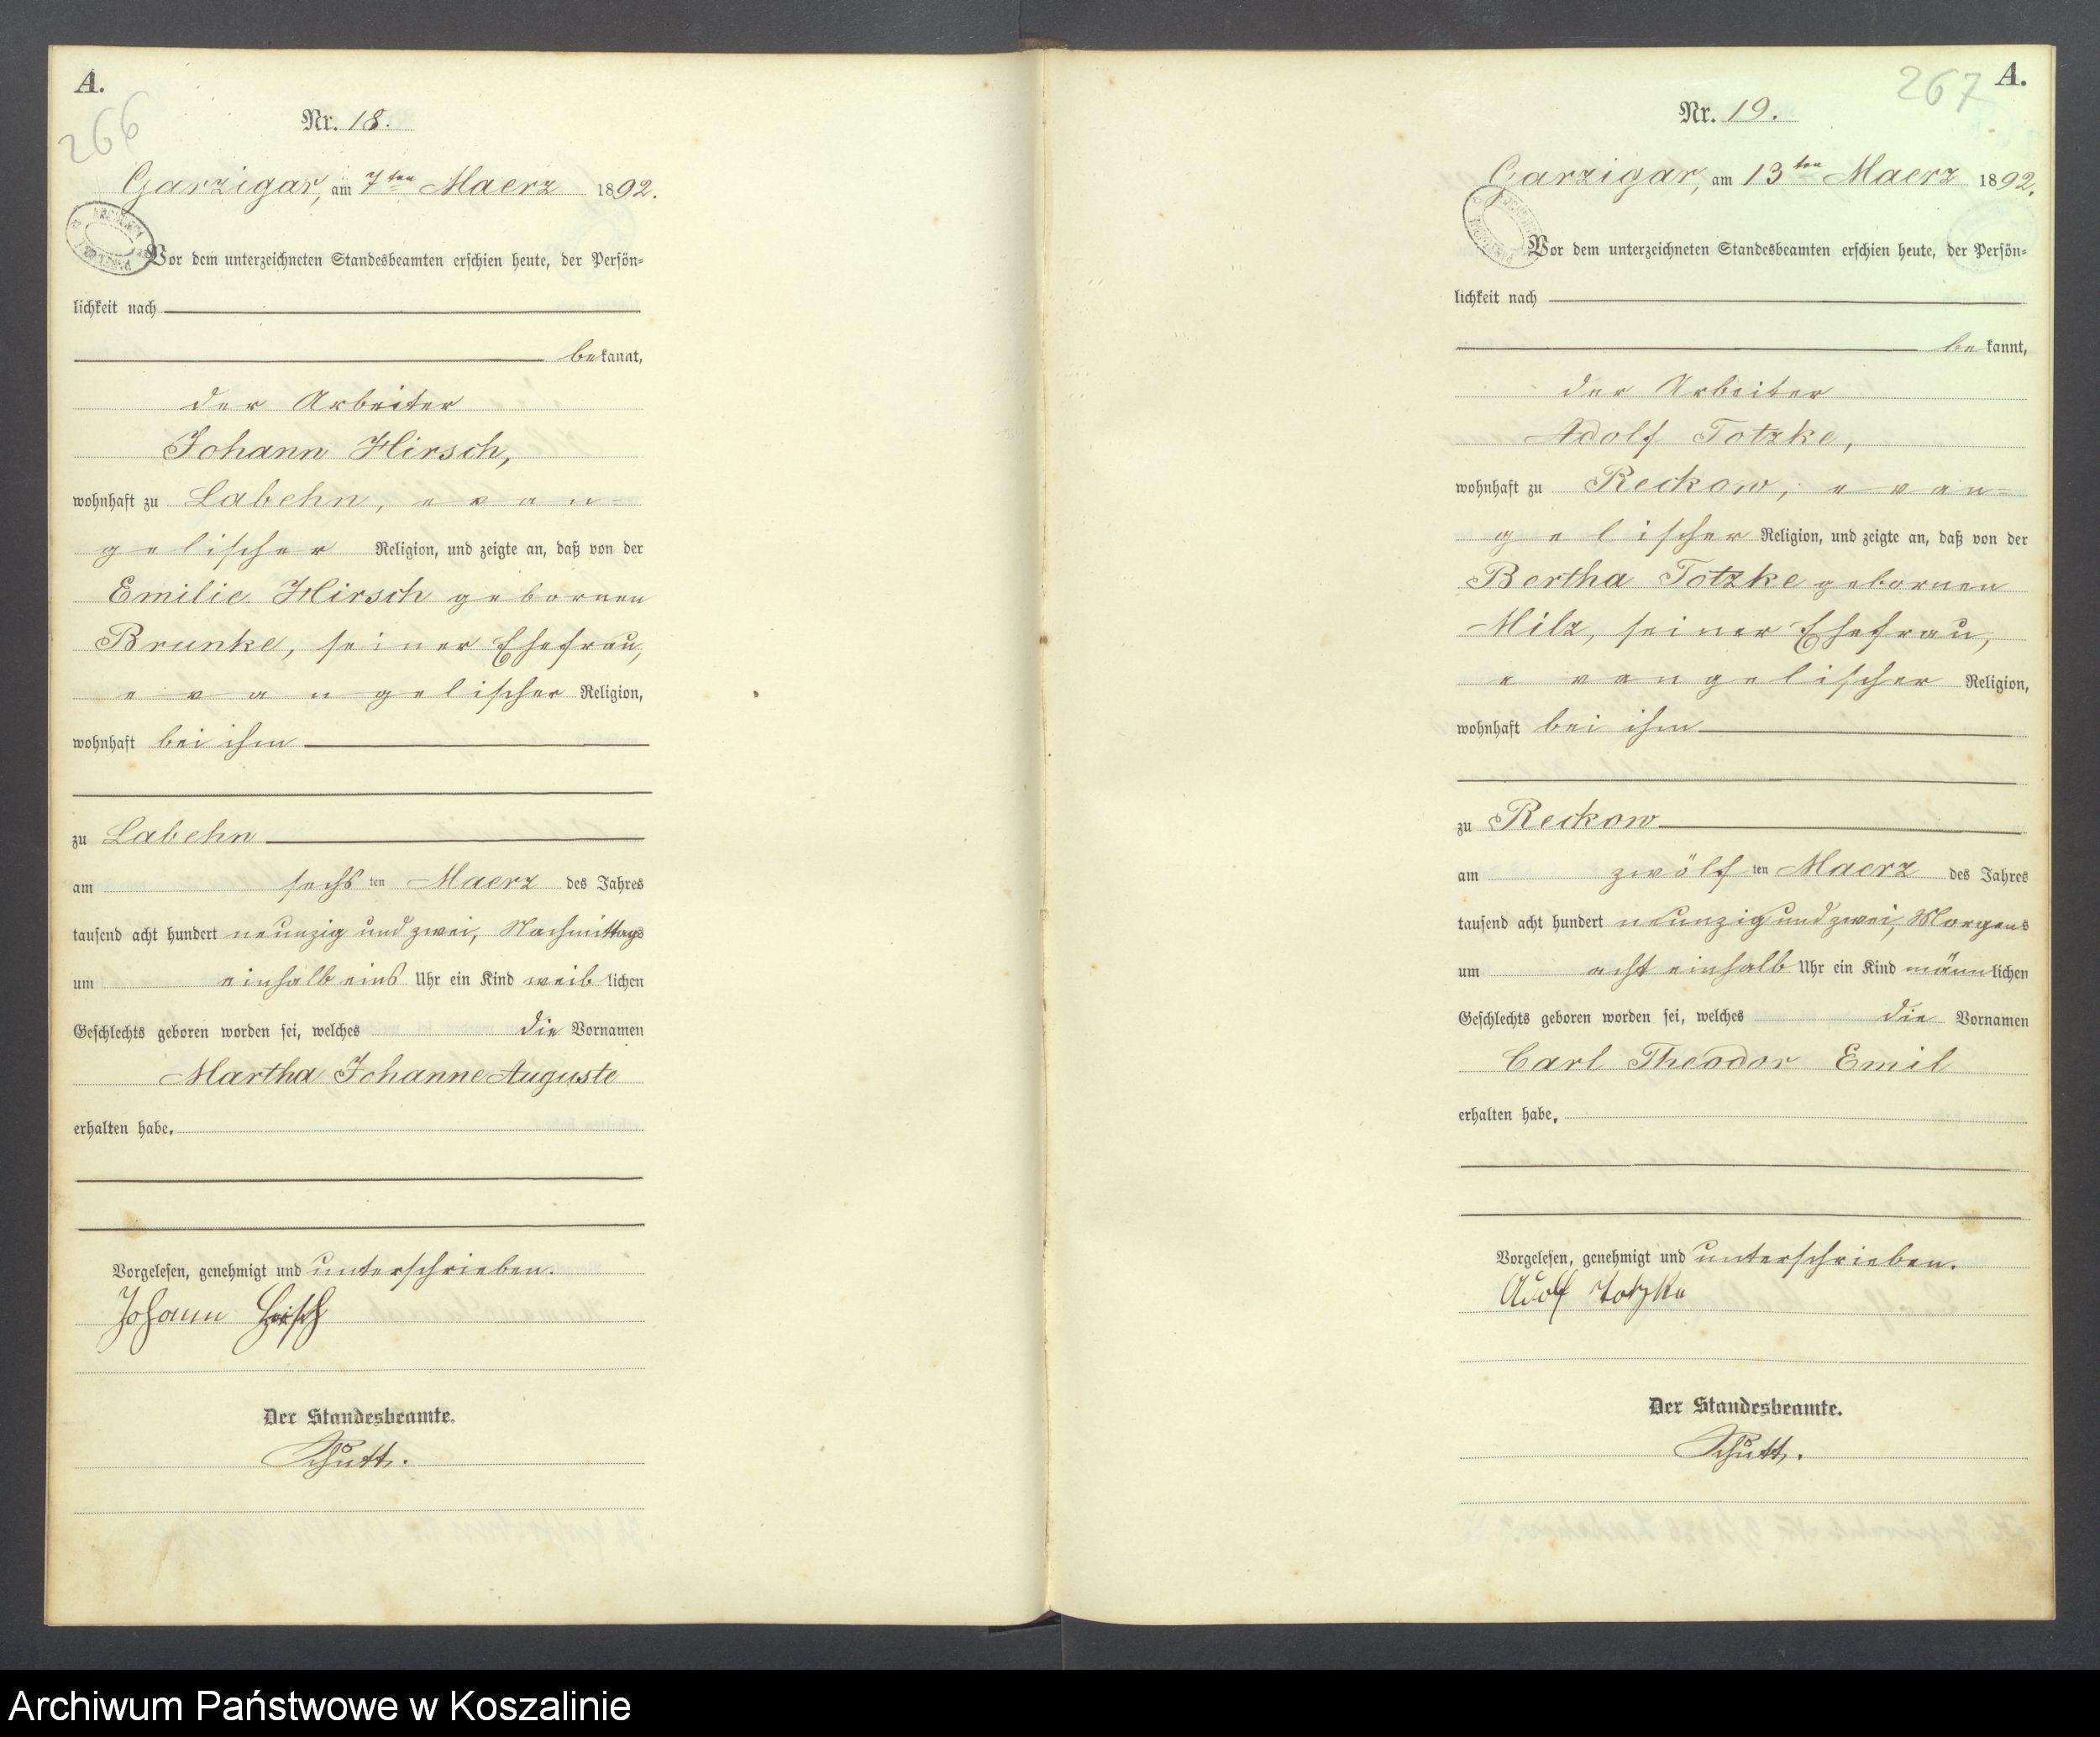 A.
266
Nr. 18.
Garzigar, am 7ten Maerz 1892.
Vor dem unterzeichneten Standesbeamten erschien heute, der Persön-
lichkeit nach
bekannt,
der Arbeiter
Johann Hirsch,
wohnhaft zu Labehn, evan-
gelischer Religion, und zeigte an, daß von der
Emilie Hirsch gebornen
Brunke, seiner Ehefrau,
evangelischer Religion,
wohnhaft bei ihm
zu Labehn
am sechsten Maerz des Jahres
tausend acht hundert neunzig und zwei, Nachmittags
um einhalb eins Uhr ein Kind weiblichen
Geschlechts geboren worden sei, welches die Vornamen
Martha Johanne Auguste
erhalten habe.
Vorgelesen, genehmigt und unterschrieben.
Johann Hirsch
Der Standesbeamte.
Schütt.
267
A.
Nr. 19.
Garzigar, am 13ten Maerz 1892.
Vor dem unterzeichneten Standesbeamten erschien heute, der Persön-
lichkeit nach
bekannt,
der Arbeiter
Adolf Totzke,
wohnhaft zu Reckow, evan-
gelischer Religion, und zeigte an, daß von der
Bertha Totzke gebornen
Milz, seiner Ehefrau,
evangelischer Religion,
wohnhaft bei ihm
zu Reckow
am zwölften Maerz des Jahres
tausend acht hundert neunzig und zwei, Morgens
um acht einhalb Uhr ein Kind männlichen
Geschlechts geboren worden sei, welches die Vornamen
Carl Theodor Emil
erhalten habe.
Vorgelesen, genehmigt und unterschrieben.
Adolf Totzke
Der Standesbeamte.
Schütt.
Archiwum Państwowe w Koszalinie